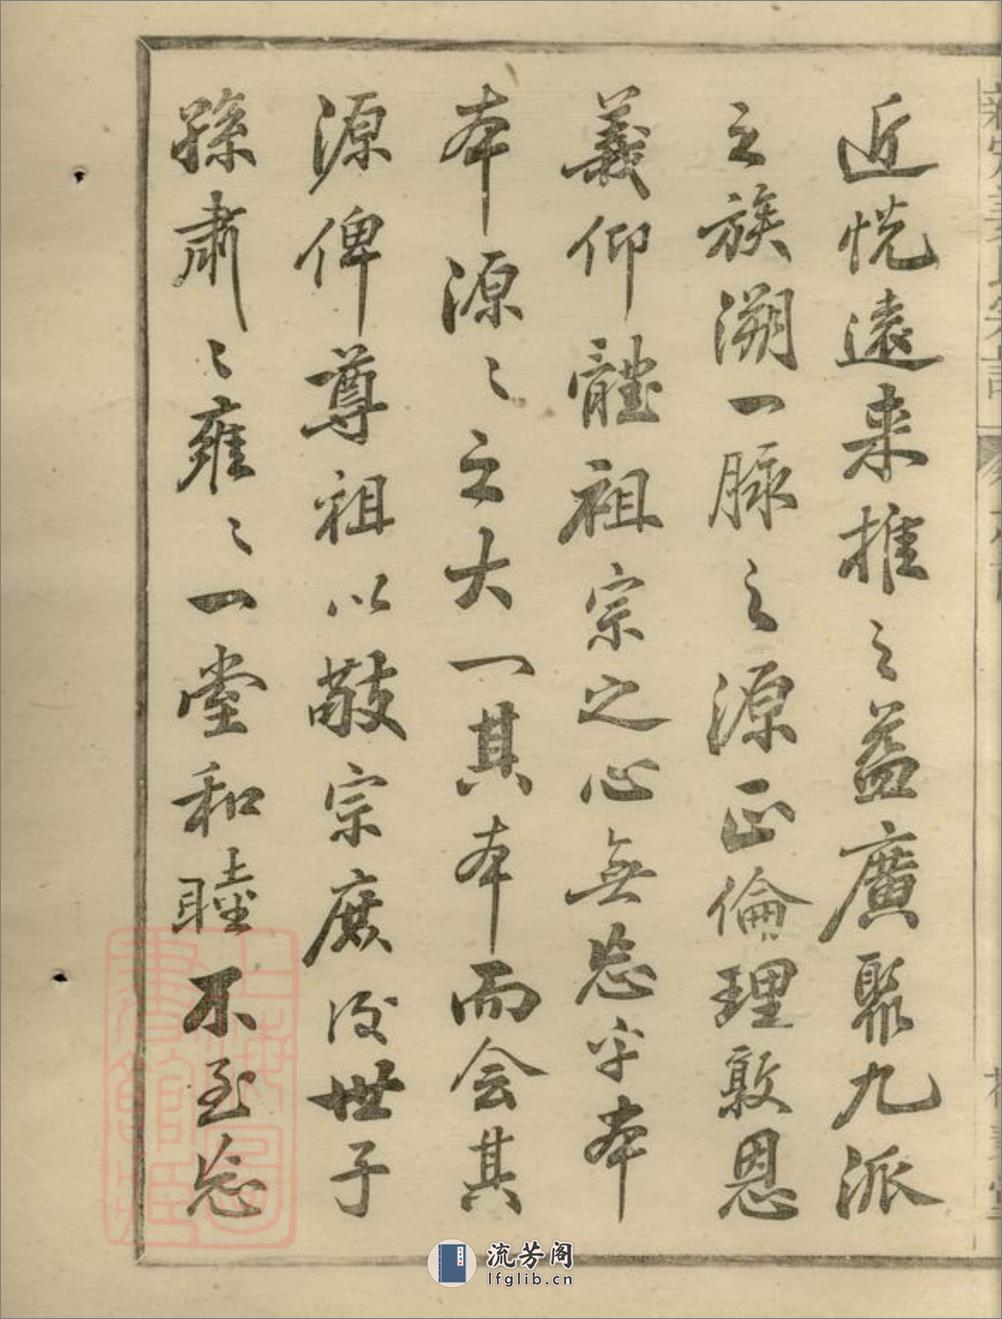 近悅遠来推之益廣聚九派
之族溯一脉之源正倫理敦恩
義仰體祖宗之心無忘乎本
本源之之大一其本而会其
源俾尊祖以敬宗庶後世子
孫肅之雍之一堂和睦不至忘
上海圖書館藏
流芳阁
lfglib.cn